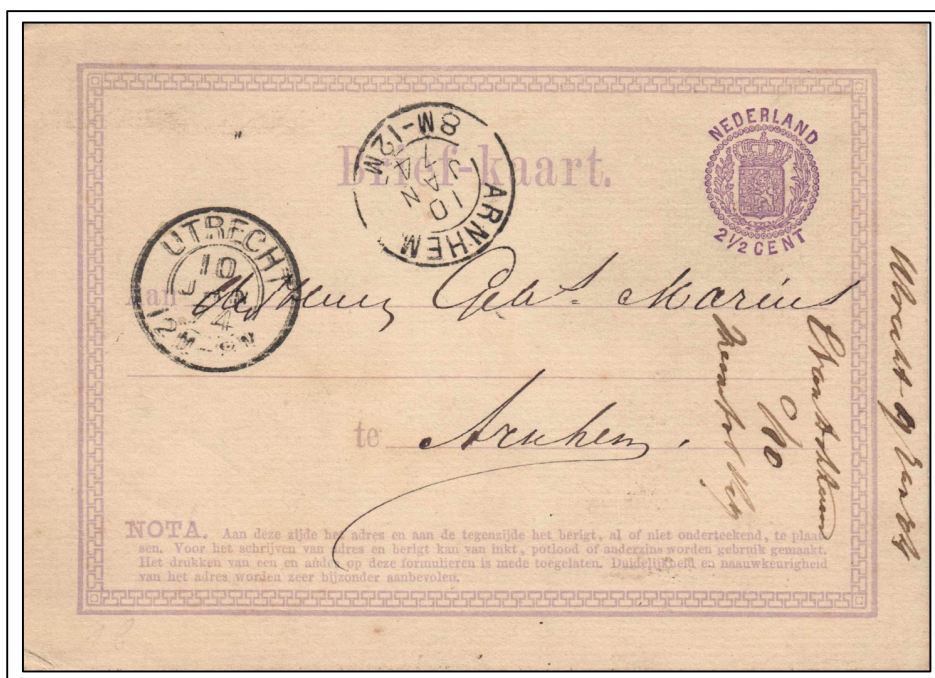 NEDERLAND
2½ CENT
Brief-kaart.
ARNHEM
10
JAN
74
8M-12M
UTRECHT
10
JAN
74
12M-
Aan
Gebs. Marius
te Arnhem.
NOTA. Aan deze zijde het adres en aan de tegenzijde het berigt, al of niet onderteekend, te plaat
sen. Voor het schrijven van adres en berigt kan van inkt, potlood of anderzins worden gebruik gemaakt.
Het drukken van een en ander op deze formulieren is mede toegelaten. Duidelijkheid en naauwkeurigheid
van het adres worden zeer bijzonder aanbevolen.
Utrecht 9 Jan 74
9/10